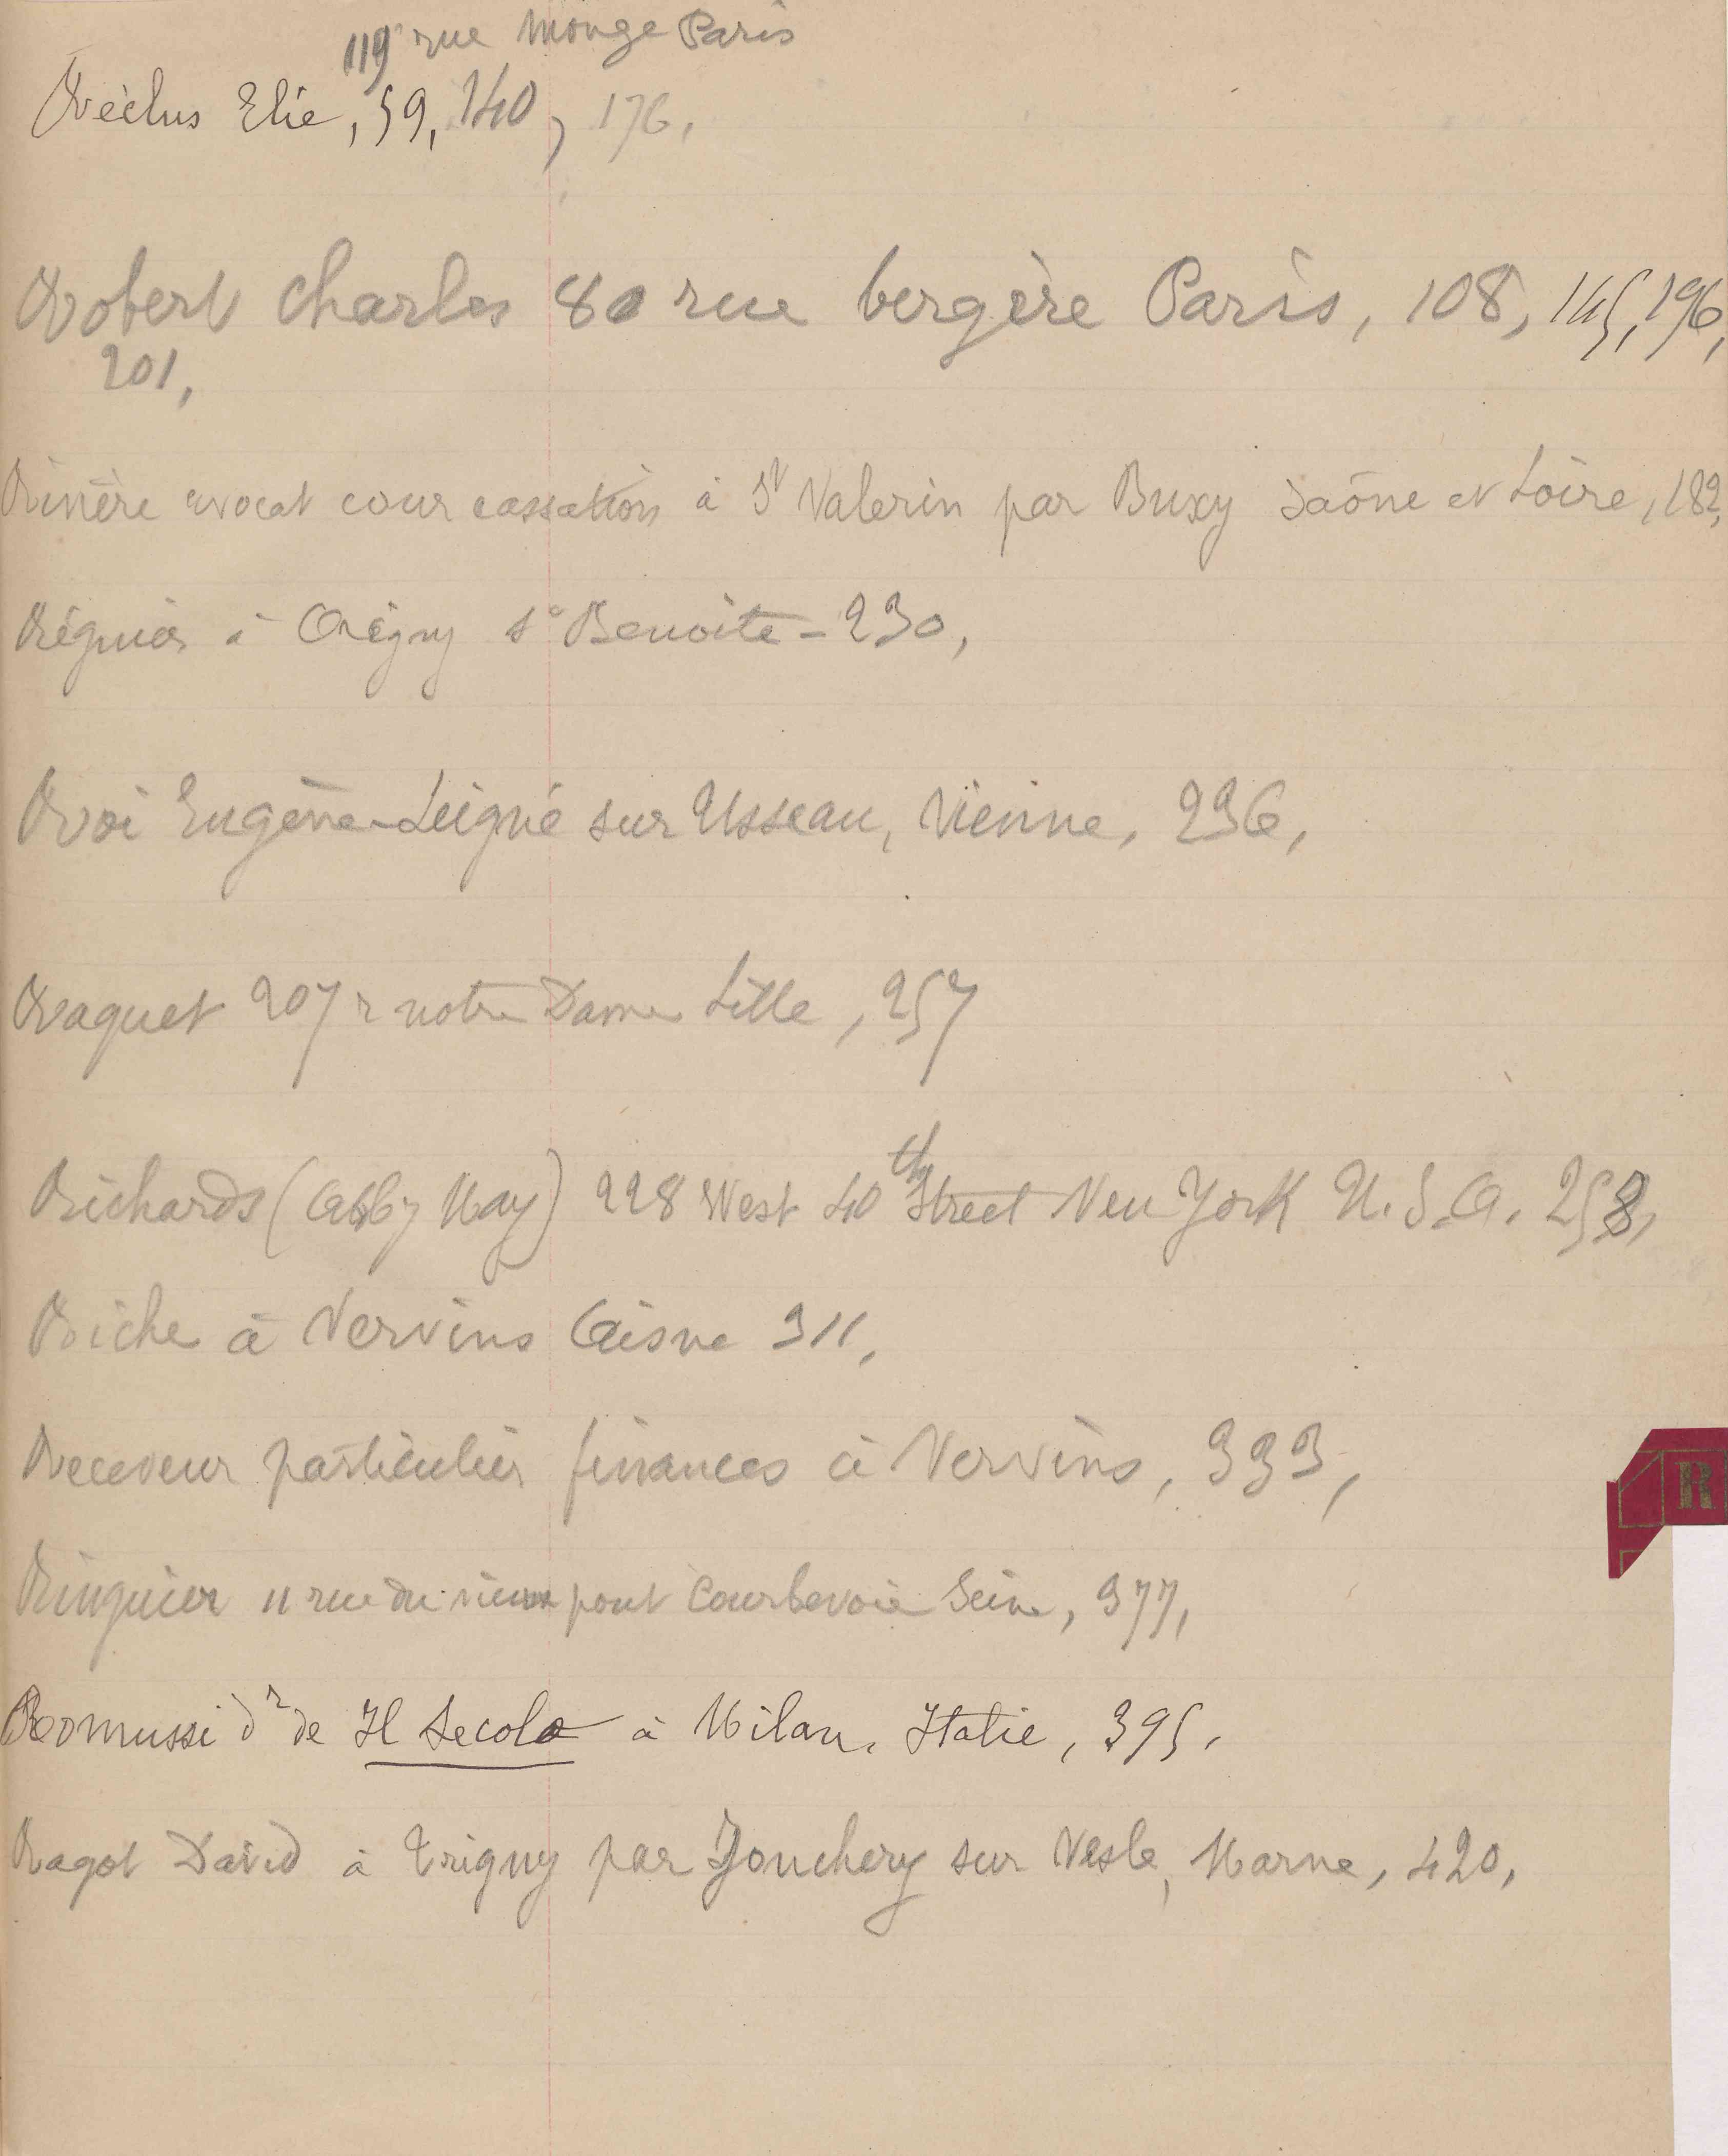 119 rue Monge Paris
Réclus Elie, 59, 140, 176,
Robert Charles 80 rue bergère Paris, 108, 145, 196,
201,
avocat cour cassation à St Valerin par Buxy Saône et Loire, 182,
Régnier à Origny Ste Benoite - 230,
Roi Eugène Leigné sur Usseau, Vienne, 236,
Raquet 207 r notre Dame Lille, 257
Richards (Abby May) 228 West 40th Street New York U.S.A. 258,
Riche à Vervins Aisne 311,
Receveur particulier finances à Vervins, 333,
Ringuier 11 rue du vieux pont Courbevoie Seine, 377,
Romussi dr de Il Secolo à Milan. Italie, 395.
Ragot David à Trigny par Jonchery sur Vesle, Marne, 420,
R